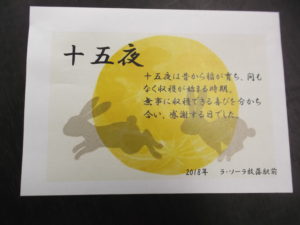 十五夜
十五夜は昔から稲が育ち、間も
なく収穫が始まる時期。
無事に収穫できる喜びを分かち
合い、感謝する日でした。
2018年 ラ・ソーラ放落駅前